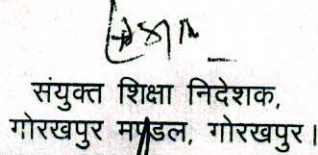 संयुक्त शिक्षा निदेशक,
गोरखपुर मण्डल, गोरखपुर।